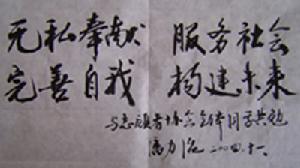 无私奉献 服务社会
完善自我 构建未来
与志愿者协会全体同学共勉
二〇〇四.十一